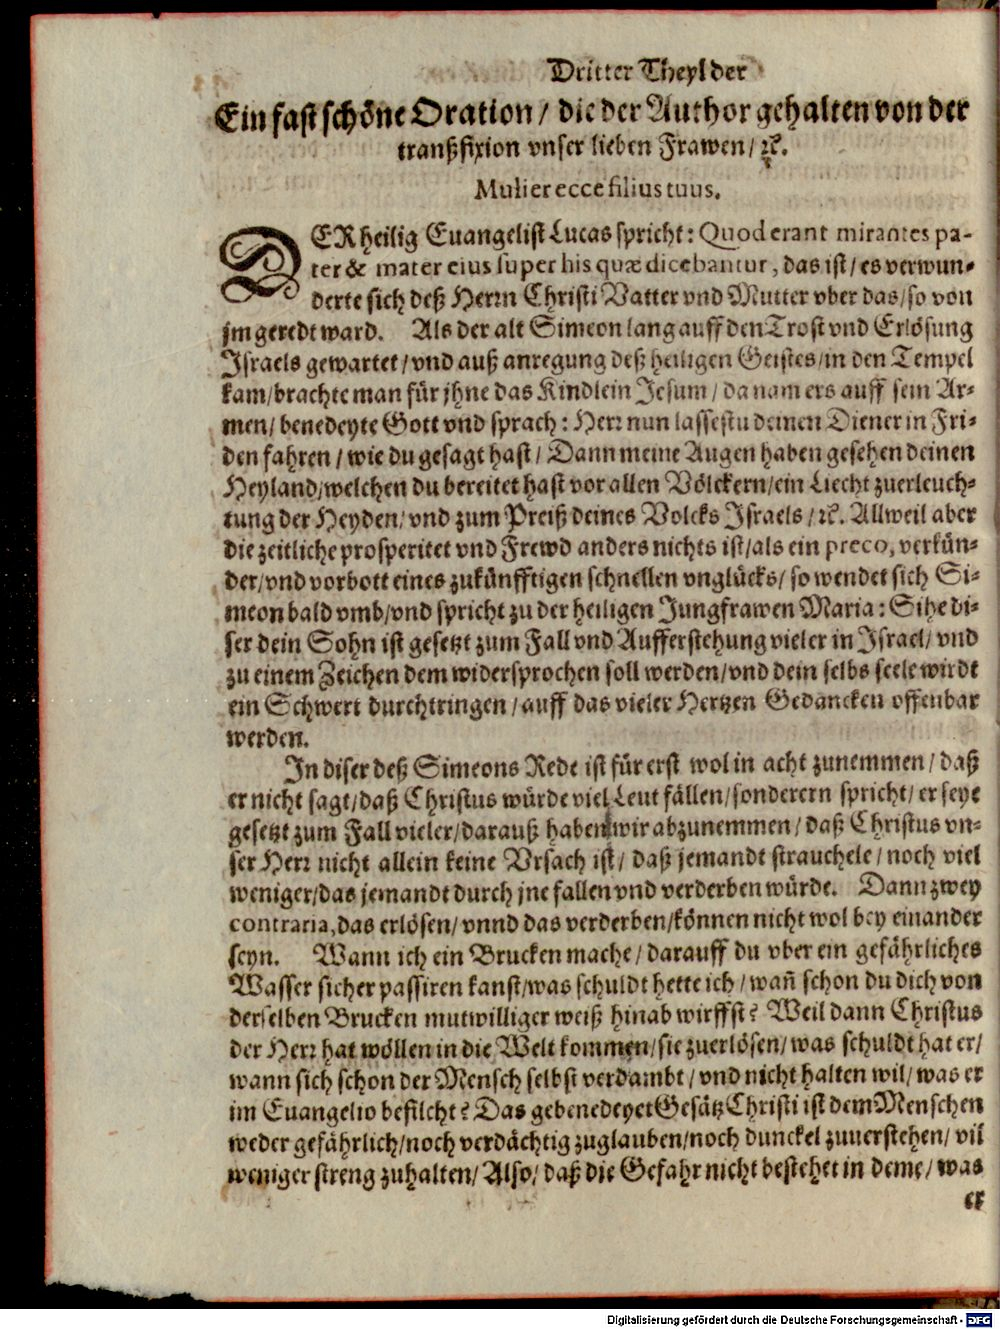 Dritter Theyl der
Ein fast schöne Oration / die der Author gehalten von der
tranßfixion vnser lieben Frawen / ꝛc.
Mulier ecce filius tuus.
DER heilig Euangelist Lucas spricht: Quod erant mirantes pa-
ter & mater eius super his quæ dicebantur, das ist / es verwun-
derte sich deß Herrn Christi Vatter vnd Mutter vber das / so von
jm geredt ward. Als der alt Simeon lang auff den Trost vnd Erlösung
Israels gewartet / vnd auß anregung deß heiligen Geistes / in den Tempel
kam / brachte man für jhne das Kindlein Jesum / da nam ers auff sein Ar-
men / benedeyte Gott vnd sprach: Herr nun lassestu deinen Diener in Fri-
den fahren / wie du gesagt hast / Dann meine Augen haben gesehen deinen
Heyland / welchen du bereitet hast vor allen Völckern / ein Liecht zuerleuch-
tung der Heyden / vnd zum Preiß deines Volcks Israels / ꝛc. Allweil aber
die zeitliche prosperitet vnd Frewd anders nichts ist / als ein preco, verkün-
der / vnd vorbott eines zukünfftigen schnellen vnglücks / so wendet sich Si-
meon bald vmb / vnd spricht zu der heiligen Jungfrawen Maria: Sihe di-
ser dein Sohn ist gesetzt zum Fall vnd Aufferstehung vieler in Israel / vnd
zu einem Zeichen dem widersprochen soll werden / vnd dein selbs seele wirdt
ein Schwert durchtringen / auff das vieler Hertzen Gedancken offenbar
werden.
In diser deß Simeons Rede ist für erst wol in acht zunemmen / daß
er nicht sagt / daß Christus würde viel Leut fällen / sonderern spricht / er seye
gesetzt zum Fall vieler / darauß haben wir abzunemmen / daß Christus vn-
ser Herr nicht allein keine Vrsach ist / daß jemandt strauchele / noch viel
weniger / das jemandt durch jne fallen vnd verderben würde. Dann zwey
contraria, das erlösen / vnnd das verderben / können nicht wol bey einander
seyn. Wann ich ein Brucken mache / darauff du vber ein gefährliches
Wasser sicher passiren kanst / was schuldt hette ich / wañ schon du dich von
derselben Brucken mutwilliger weiß hinab wirffst? Weil dann Christus
der Herr hat wöllen in die Welt kommen / sie zuerlösen / was schuldt hat er /
wann sich schon der Mensch selbst verdambt / vnd nicht halten wil / was er
im Euangelio befilcht? Das gebenedeyet Gesätz Christi ist dem Menschen
weder gefährlich / noch verdächtig zuglauben / noch dunckel zuuerstehen / vil
weniger streng zuhalten / Also / daß die Gefahr nicht bestehet in deme / was
er
Digitalisierung gefördert durch die Deutsche Forschungsgemeinschaft - DFG